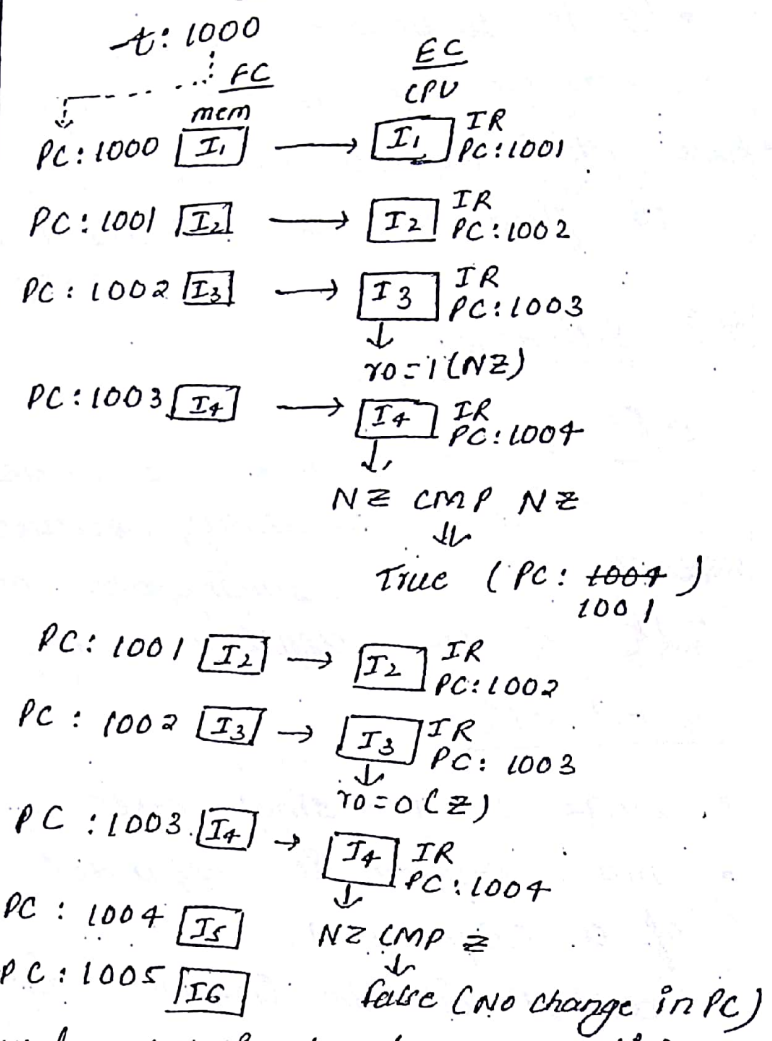 t: 1000
FC
EC
mem
CPU
PC: 1000 I1 → I1 IR
PC: 1001
PC: 1001 I2 → I2 IR
PC: 1002
PC: 1002 I3 → I3 IR
PC: 1003
↓
r0 = 1 (NZ)
PC: 1003 I4 → I4 IR
PC: 1004
↓
NZ CMP NZ
⇓
True (PC: 1004)
1001
PC: 1001 I2 → I2 IR
PC: 1002
PC: 1002 I3 → I3 IR
PC: 1003
↓
r0 = 0 (Z)
PC: 1003 I4 → I4 IR
PC: 1004
↓
PC: 1004 I5 NZ CMP Z
↓
PC: 1005 I6 false (No change in PC)